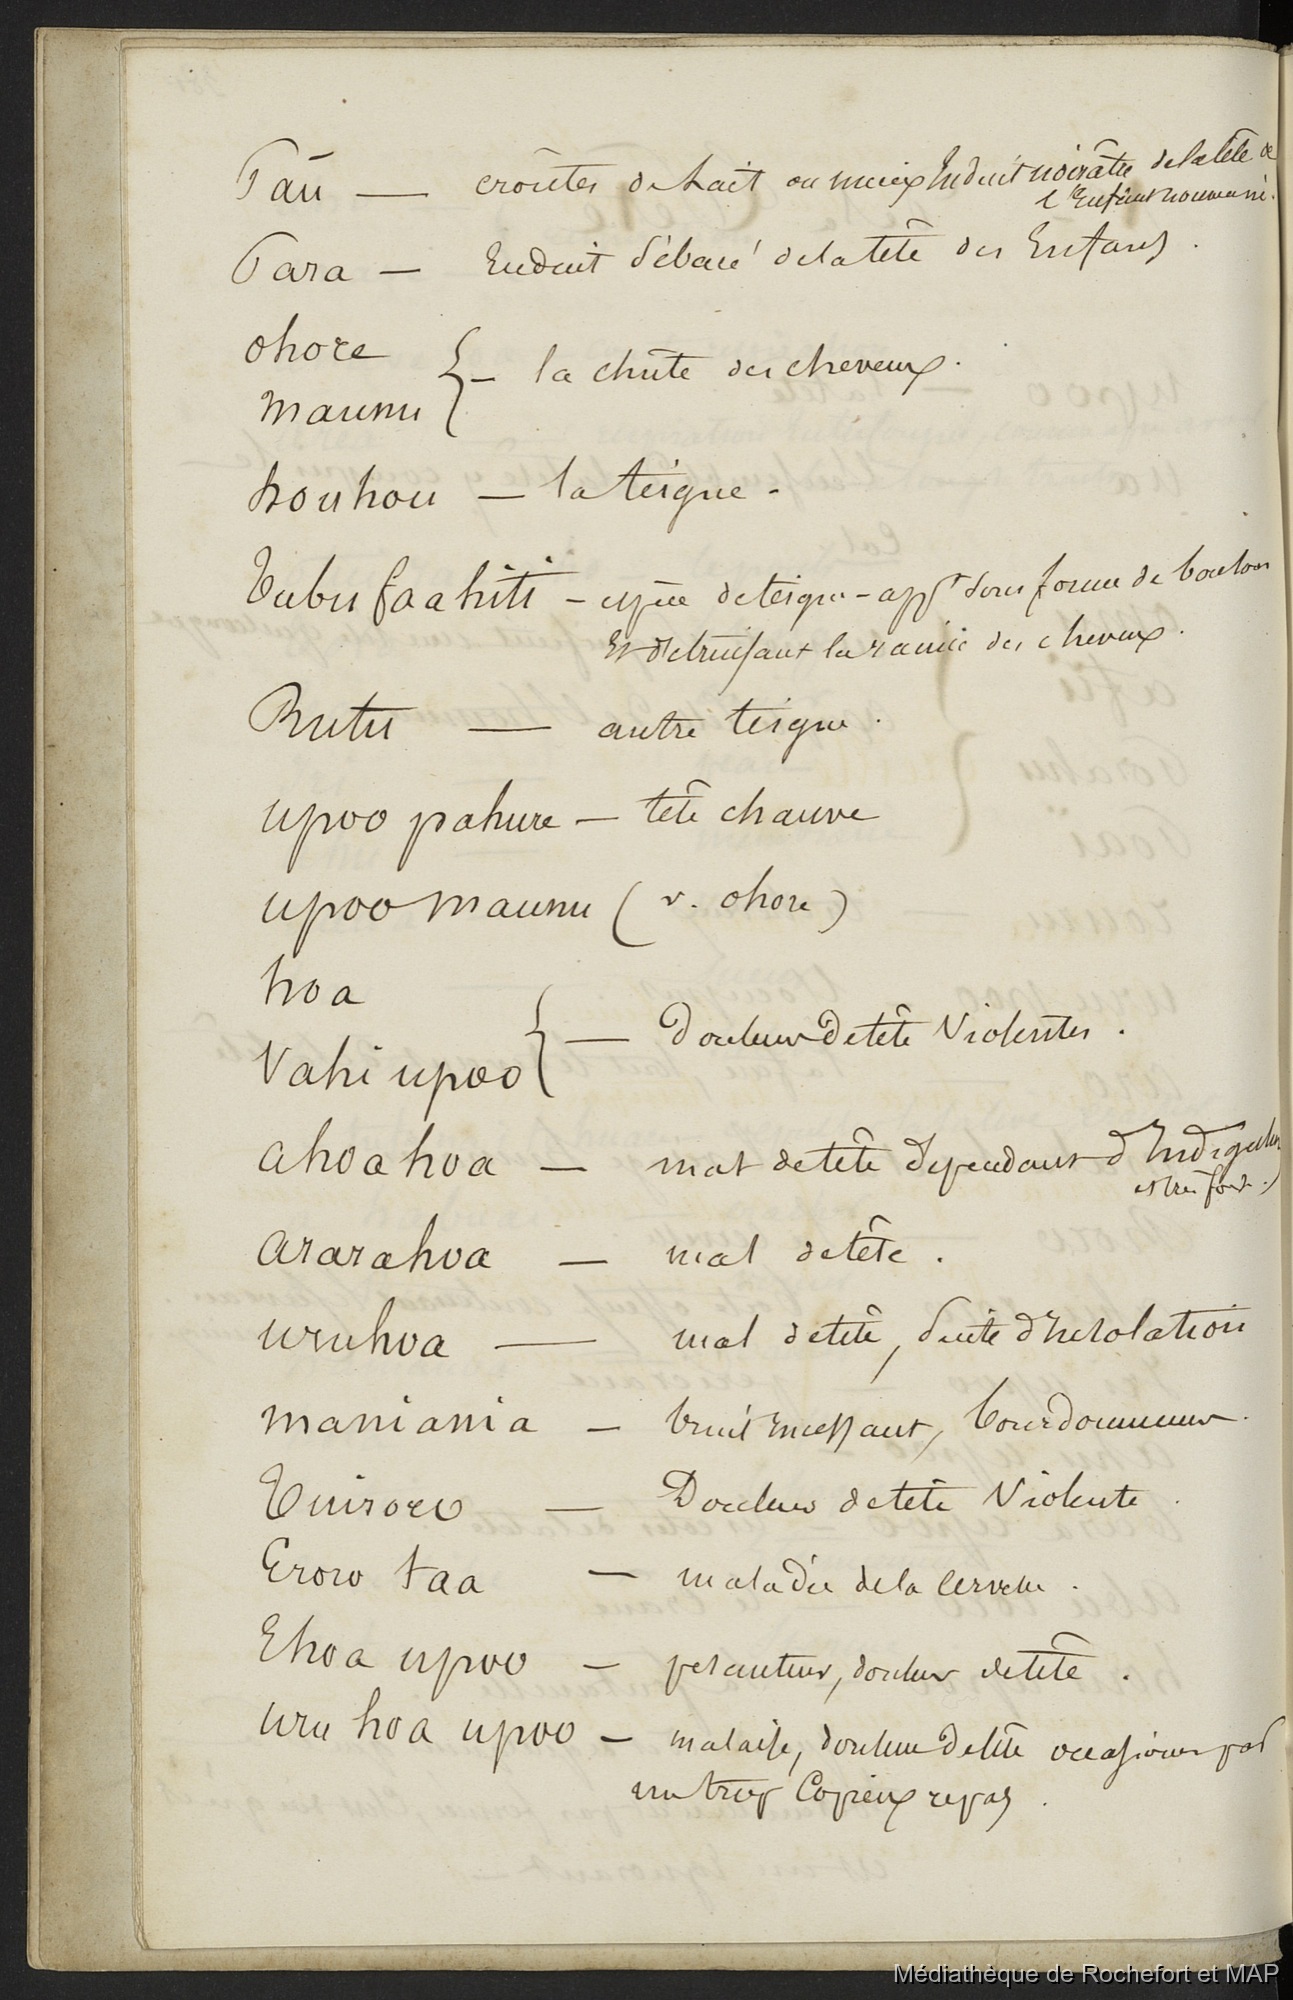 Táu — croûtes de lait ou mieux Enduit noirâtre de la tête de
l'Enfant nouveau né.
Para — Enduit sébacé de la tête des Enfans.
ohore
maunu } — la chûte des cheveux.
houhou — la teigne.
Tubu faahiti — espèce de teigne - appt sous forme de boutons
Et détruisant la racine des cheveux.
Rutu — autre teigne.
upoo pahure — tête chauve
upoo maunu (v. ohore)
hoa
Vahi upoo } — Douleurs de tête Violentes.
ahoahoa — mal de tête dépendant d'Indigestion
et très fort.)
ararahoa — mal de tête.
uruhoa — mal de tête, suite d'Insolation
maniania — bruit incessant, bourdonnement.
Tuiroro — Douleur de tête Violente.
Eroro taa — maladie de la cervelle.
Ehoa upoo — pesanteur, douleur de tête.
uru hoa upoo — malaise, douleur de tête occasionée par
un trop Copieux repas.
Médiathèque de Rochefort et MAP